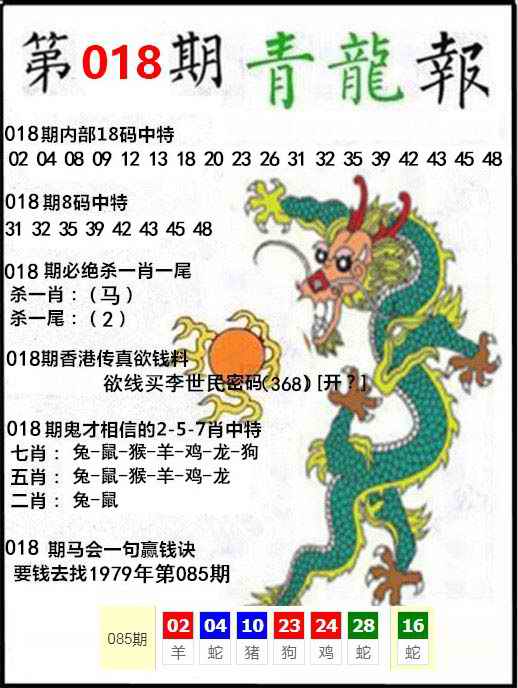 第018期青龍報
018期内部18码中特
02 04 08 09 12 13 18 20 23 26 31 32 35 39 42 43 45 48
018期8码中特
31 32 35 39 42 43 45 48
018 期必绝杀一肖一尾
杀一肖：（马）
杀一尾：（2）
018期香港传真欲钱料
欲线买李世民密码(368) [开？]
018期鬼才相信的2-5-7肖中特
七肖： 兔-鼠-猴-羊-鸡-龙-狗
五肖： 兔-鼠-猴-羊-鸡-龙
二肖： 兔-鼠
018 期马会一句赢钱诀
要钱去找1979年第085期
085期 02 04 10 23 24 28 16
羊 蛇 猪 狗 鸡 蛇 蛇